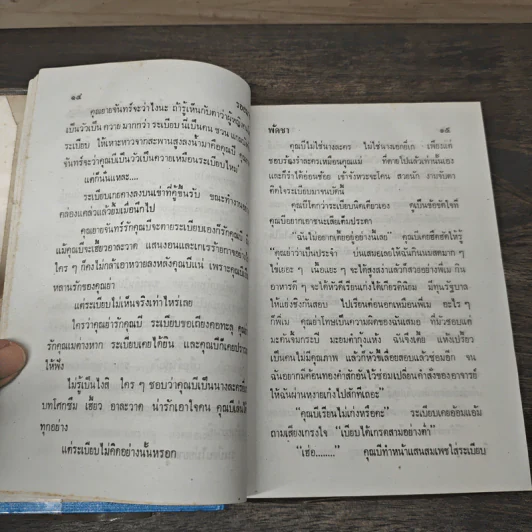 ๑๔
คุณยายจันทร์จะว่าไงนะ ถ้ารู้เห็นกับตาว่าผู้หญิง
เป็นวัวเป็น ควาย มากกว่า ระเบียบ นี่เป็นคน ชวน
ระเบียบ ให้เหาะหาวจากสะพานสูงลงน้ำมาต่อคุณบี
จันทร์จะว่าคุณบีเป็นวัวเป็นควายเหมือนระเบียบไหม
แต่ก็นั่นแหละ....
ระเบียบเกยคางลงบนเข่าที่กู้ขึ้นรับ ขณะทำงาน
คล่องแคล่วแล้วยิ้มเมื่อนึกไป
คุณยายจันทร์รักคุณบีจะตายระเบียบเองก็รักคุณบี
แม้คุณบีจะเฮี้ยวอาละวาด แสนงอนและเกเรร้ายกาจอย่าง
ใคร ๆ ก็คงไม่กล้าเอาหวายลงหลังคุณบีแน่ เพราะคุณบี
หลานรักของคุณย่า
แต่ระเบียบไม่เห็นจริงเท่าไหร่เลย
ใครว่าคุณย่ารักคุณบี ระเบียบขอเถียงคอทะลุ คุณ
รักคุณเมต่างหาก ระเบียบเคยได้ยิน และคุณบีก็เคย
ให้ฟัง
ไม่รู้เป็นไงสิ ใคร ๆ ชอบว่าคุณบีเป็นนางละคร
บทโศกซึม เฮี้ยว อาละวาด น่ารักเอาใจคน คุณบีเล่น
ทุกอย่าง
แต่ระเบียบไม่คิดอย่างนั้นหรอก
พัดชา
๑๕
คุณบีไม่ใช่นางละคร ไม่ใช่นางเอกยี่เก เพียงแค่
ชอบร้องรำละครเหมือนคุณแม่ ที่ตายไปแล้วเท่านั้นเอง
และก็ว่าได้อ่อนช้อย เข้าจังหวะจะโคน สวยนัก งามจับตา
ติดใจระเบียบมาจนบัดนี้
คุณบีโตกว่าระเบียบนิดเดียวเอง ดูเป็นข้อขัดใจที่
คุณบีอยากเอาชนะเสียเต็มประดา
"ฉันไม่อยากเตี้ยอยู่อย่างนี้เลย" คุณบีเคยฮึดฮัดให้รู้
"คุณย่าว่าเป็นประจำ บ่นเสมอเลยให้ฉันกินนมสดมาก ๆ
ไข่เยอะ ๆ เนื้อแยะ ๆ จะได้สูงสง่าแล้วก็สวยอย่างพี่เม กิน
อาหารดี ๆ จะได้หัวดีเรียนเก่งได้เกียรตินิยม มีทุนรัฐบาล
ให้แย่งชิงกันสอบ ไปเรียนต่อนอกเหมือนพี่เม อะไร ๆ
ก็พี่เม คุณย่าโทษเป็นความผิดของฉันเสมอ ที่มัวชอบแต่
มะดันจิ้มกระปิ มะยมคำกุ้งแห้ง ฉันจึงเตี้ย แห้งเปรี้ยว
เป็นคนไม่มีคุณภาพ แล้วก็หัวขี้เลื่อยสอบแล้วซ่อมอีก จน
ฉันอยากมีค้อนทองคำสักอันไว้ซ่อมเปลี่ยนคำสั่งของอาจารย์
ให้ฉันผ่านหงายเก๋งไปสักทีเถอะ"
"คุณบีเรียนไม่เก่งหรือคะ" ระเบียบเคยอ้อมแอ้ม
ถามเสียงเกรงใจ "เบียบได้เกรดสามอย่างต่ำ"
"เฮ่อ........" คุณบีทำหน้าแสนสมเพชใส่ระเบียบ